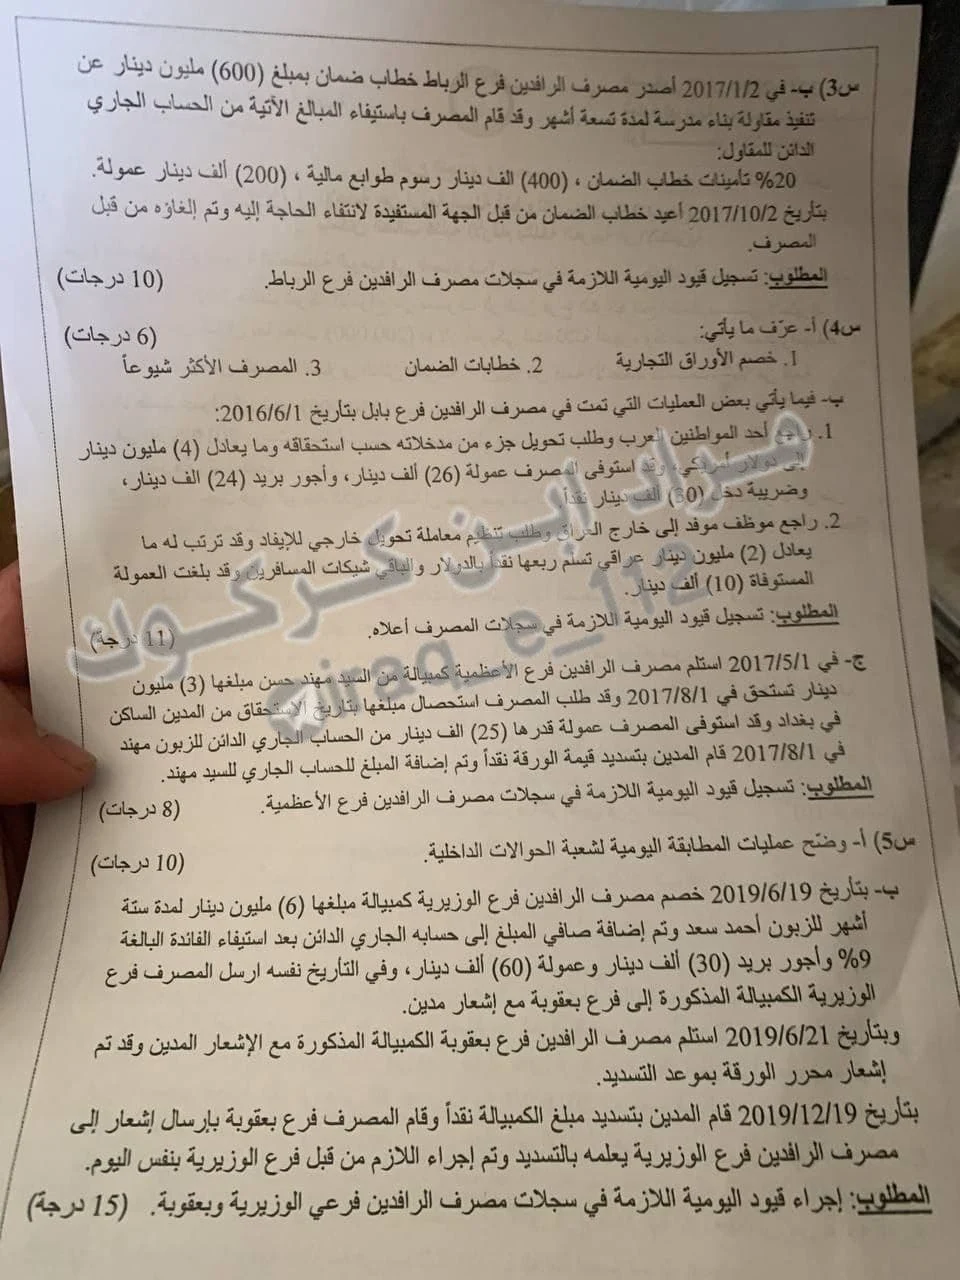 س3) ب- في 2017/1/2 أصدر مصرف الرافدين فرع الرباط خطاب ضمان بمبلغ (600) مليون دينار عن
تنفيذ مقاولة بناء مدرسة لمدة تسعة أشهر وقد قام المصرف باستيفاء المبالغ الآتية من الحساب الجاري
الدائن للمقاول:
20% تأمينات خطاب الضمان ، (400) الف دينار رسوم طوابع مالية ، (200) ألف دينار عمولة.
بتأريخ 2017/10/2 أعيد خطاب الضمان من قبل الجهة المستفيدة لانتفاء الحاجة إليه وتم إلغاؤه من قبل
المصرف.
المطلوب: تسجيل قيود اليومية اللازمة في سجلات مصرف الرافدين فرع الرباط. (10 درجات)
س4) أ- عرّف ما يأتي: (6 درجات)
1. خصم الأوراق التجارية 2. خطابات الضمان 3. المصرف الأكثر شيوعاً
ب- فيما يأتي بعض العمليات التي تمت في مصرف الرافدين فرع بابل بتأريخ 2016/6/1:
1. راجع أحد المواطنين العرب وطلب تحويل جزء من مدخلاته حسب استحقاقه وما يعادل (4) مليون دينار
إلى دولار أمريكي، وقد استوفى المصرف عمولة (26) ألف دينار، وأجور بريد (24) الف دينار،
وضريبة دخل (30) ألف دينار نقداً.
2. راجع موظف موفد إلى خارج العراق وطلب تنظيم معاملة تحويل خارجي للإيفاد وقد ترتب له ما
يعادل (2) مليون دينار عراقي تسلم ربعها نقداً بالدولار والباقي شيكات المسافرين وقد بلغت العمولة
المستوفاة (10) ألف دينار.
المطلوب: تسجيل قيود اليومية اللازمة في سجلات المصرف أعلاه. (11 درجة)
ج- في 2017/5/1 استلم مصرف الرافدين فرع الأعظمية كمبيالة من السيد مهند حسن مبلغها (3) مليون
دينار تستحق في 2017/8/1 وقد طلب المصرف استحصال مبلغها بتاريخ الاستحقاق من المدين الساكن
في بغداد وقد استوفى المصرف عمولة قدرها (25) الف دينار من الحساب الجاري الدائن للزبون مهند
في 2017/8/1 قام المدين بتسديد قيمة الورقة نقداً وتم إضافة المبلغ للحساب الجاري للسيد مهند.
المطلوب: تسجيل قيود اليومية اللازمة في سجلات مصرف الرافدين فرع الأعظمية. (8 درجات)
س5) أ- وضّح عمليات المطابقة اليومية لشعبة الحوالات الداخلية. (10 درجات)
ب- بتأريخ 2019/6/19 خصم مصرف الرافدين فرع الوزيرية كمبيالة مبلغها (6) مليون دينار لمدة ستة
أشهر للزبون أحمد سعد وتم إضافة صافي المبلغ إلى حسابه الجاري الدائن بعد استيفاء الفائدة البالغة
9% وأجور بريد (30) ألف دينار وعمولة (60) ألف دينار، وفي التأريخ نفسه ارسل المصرف فرع
الوزيرية الكمبيالة المذكورة إلى فرع بعقوبة مع إشعار مدين.
وبتأريخ 2019/6/21 استلم مصرف الرافدين فرع بعقوبة الكمبيالة المذكورة مع الإشعار المدين وقد تم
إشعار محرر الورقة بموعد التسديد.
بتأريخ 2019/12/19 قام المدين بتسديد مبلغ الكمبيالة نقداً وقام المصرف فرع بعقوبة بإرسال إشعار إلى
مصرف الرافدين فرع الوزيرية يعلمه بالتسديد وتم إجراء اللازم من قبل فرع الوزيرية بنفس اليوم.
المطلوب: إجراء قيود اليومية اللازمة في سجلات مصرف الرافدين فرعي الوزيرية وبعقوبة. (15 درجة)
مراد ابن كركوك